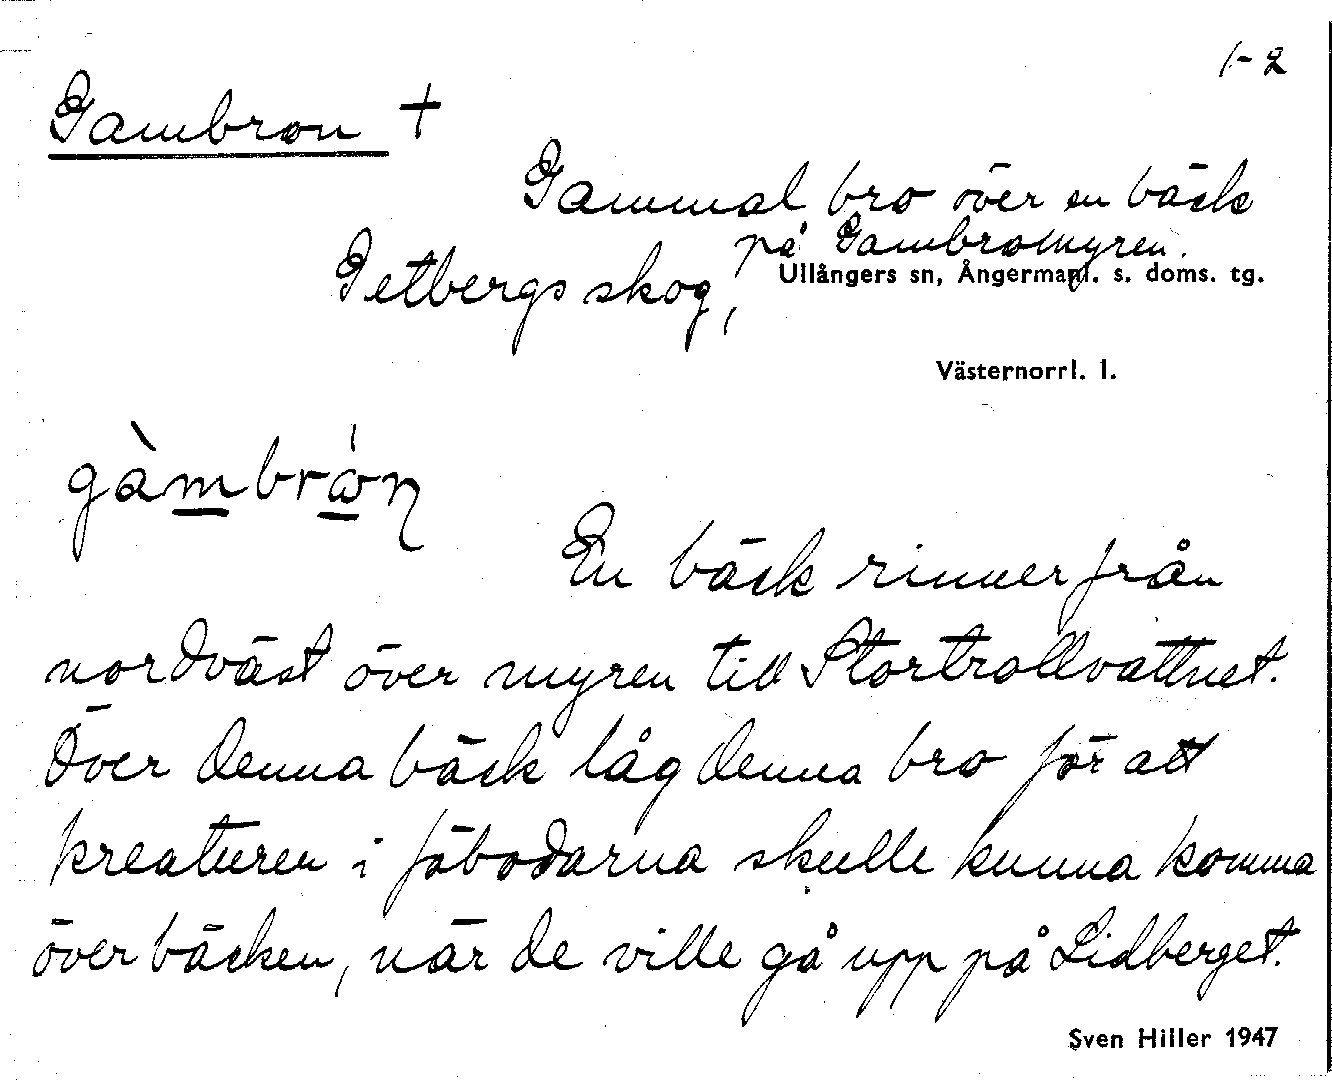 1-2
Gambron +
Gammal bro över en bäck
på Gambromyren.
Getbergsskog,
Ullångers sn, Ångermanl. s. doms. tg.
Västernorrl. l.
En bäck rinner från
nordväst över myren till Stortrollvattnet.
Över denna bäck låg denna bro för att
kreaturen i fäbodarna skulle kunna komma
över bäcken, när de ville gå upp på Lidberget.
Sven Hiller 1947